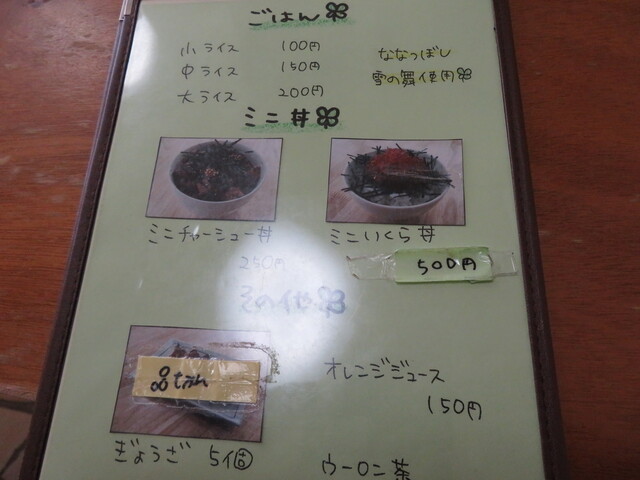 ごはん
小ライス 100円
中ライス 150円
大ライス 200円
ななつぼし
雪の舞使用
ミニ丼
ミニチャーシュー丼
250円
ミニいくら丼
500円
その他
品切れ
ぎょうざ 5個
オレンジジュース
150円
ウーロン茶